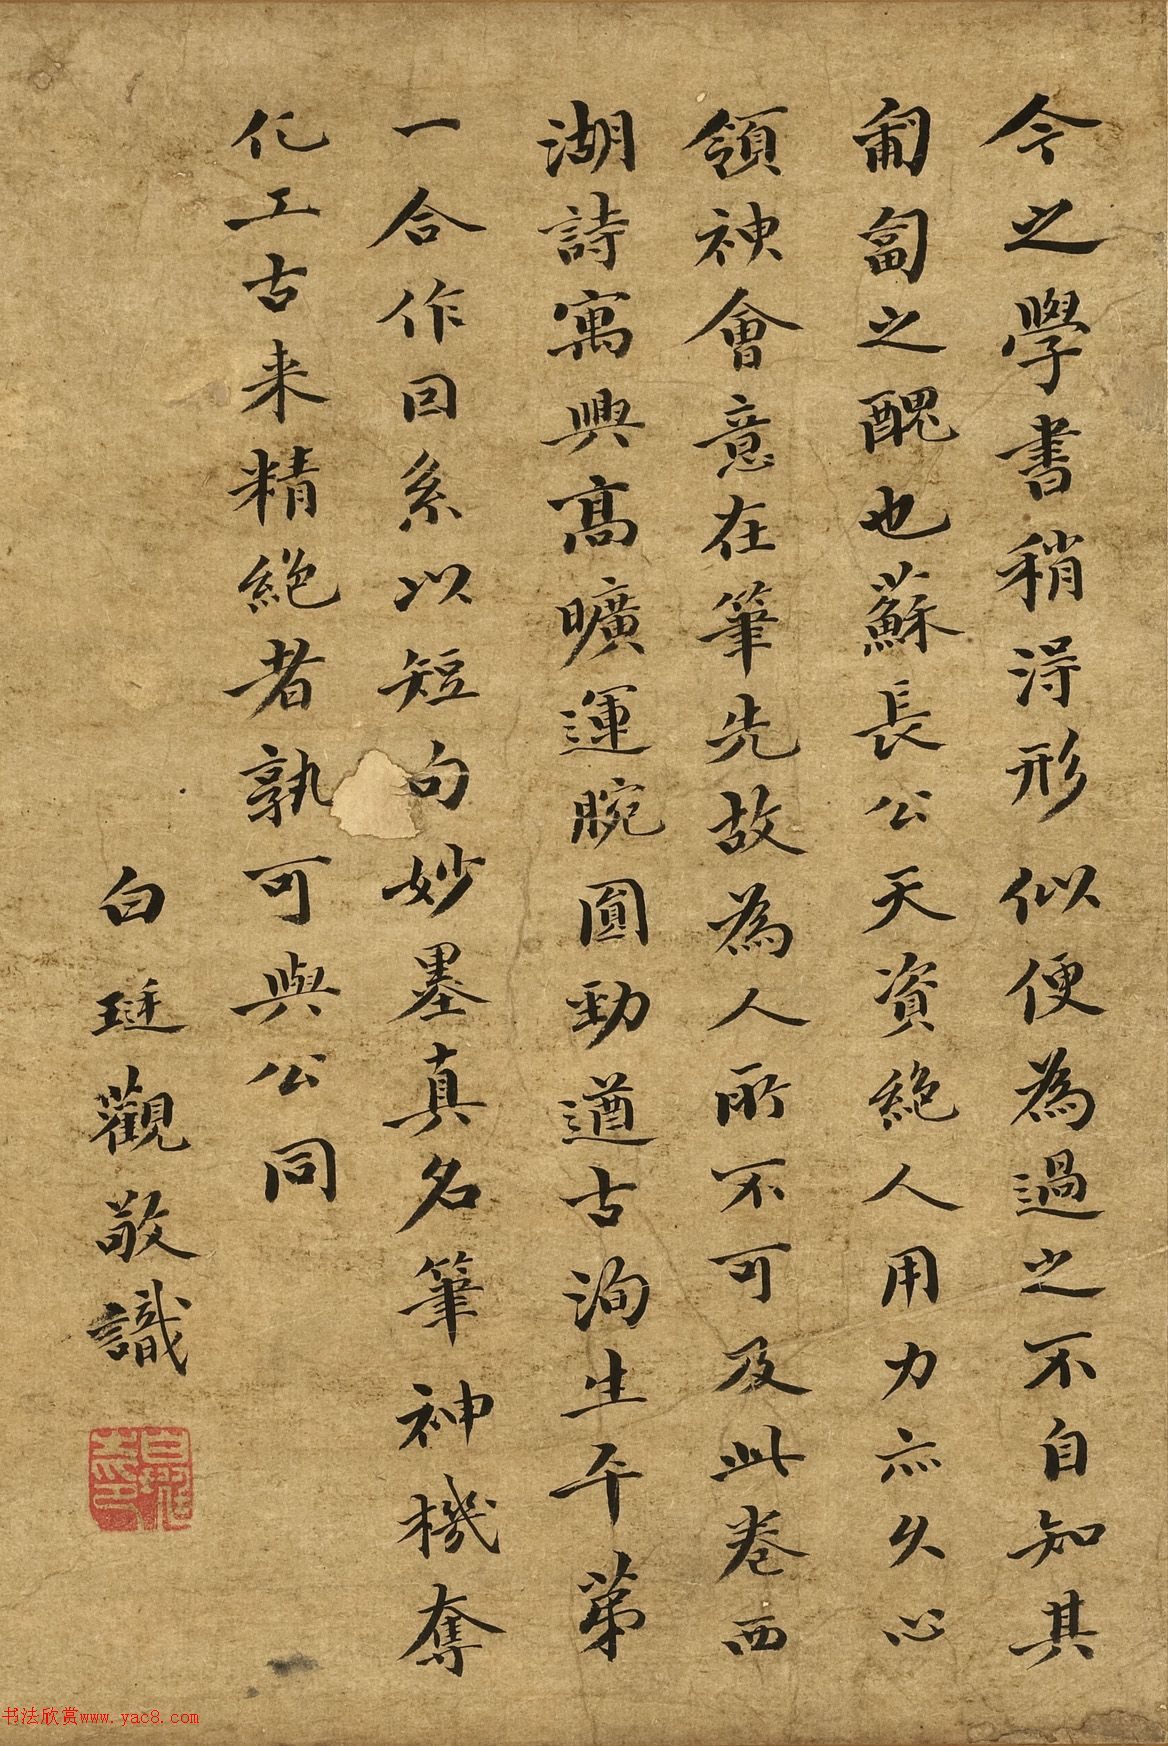 今之學書稍得形似便為過之不自知其
匍匐之醜也蘇長公天資絶人用力亦久心
領神會意在筆先故為人所不可及此卷西
湖詩寓興高曠運腕圓勁遒古洵生平第
一合作回系以短句妙墨真名筆神機奪
化工古来精絶者孰可與公同
白琎觀敬識
书法欣赏www.yac8.com